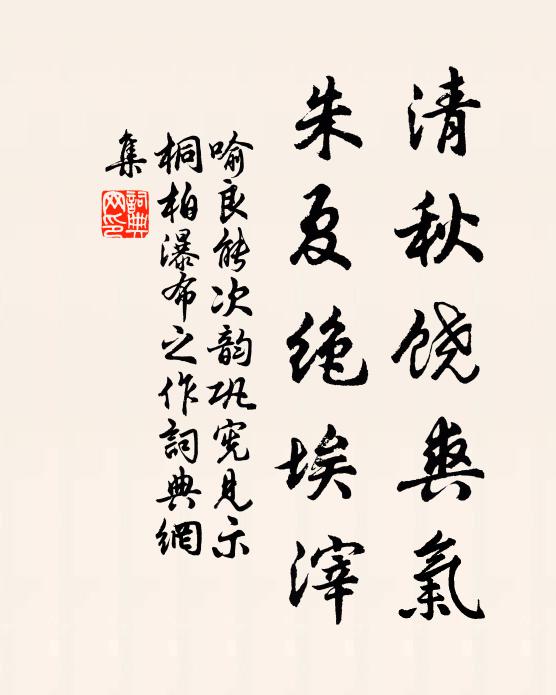 清秋饶爽氣
朱夏绝埃滓
喻良能次韵巩宪見示
桐柏瀑布之作詞典網
集
詞典网印